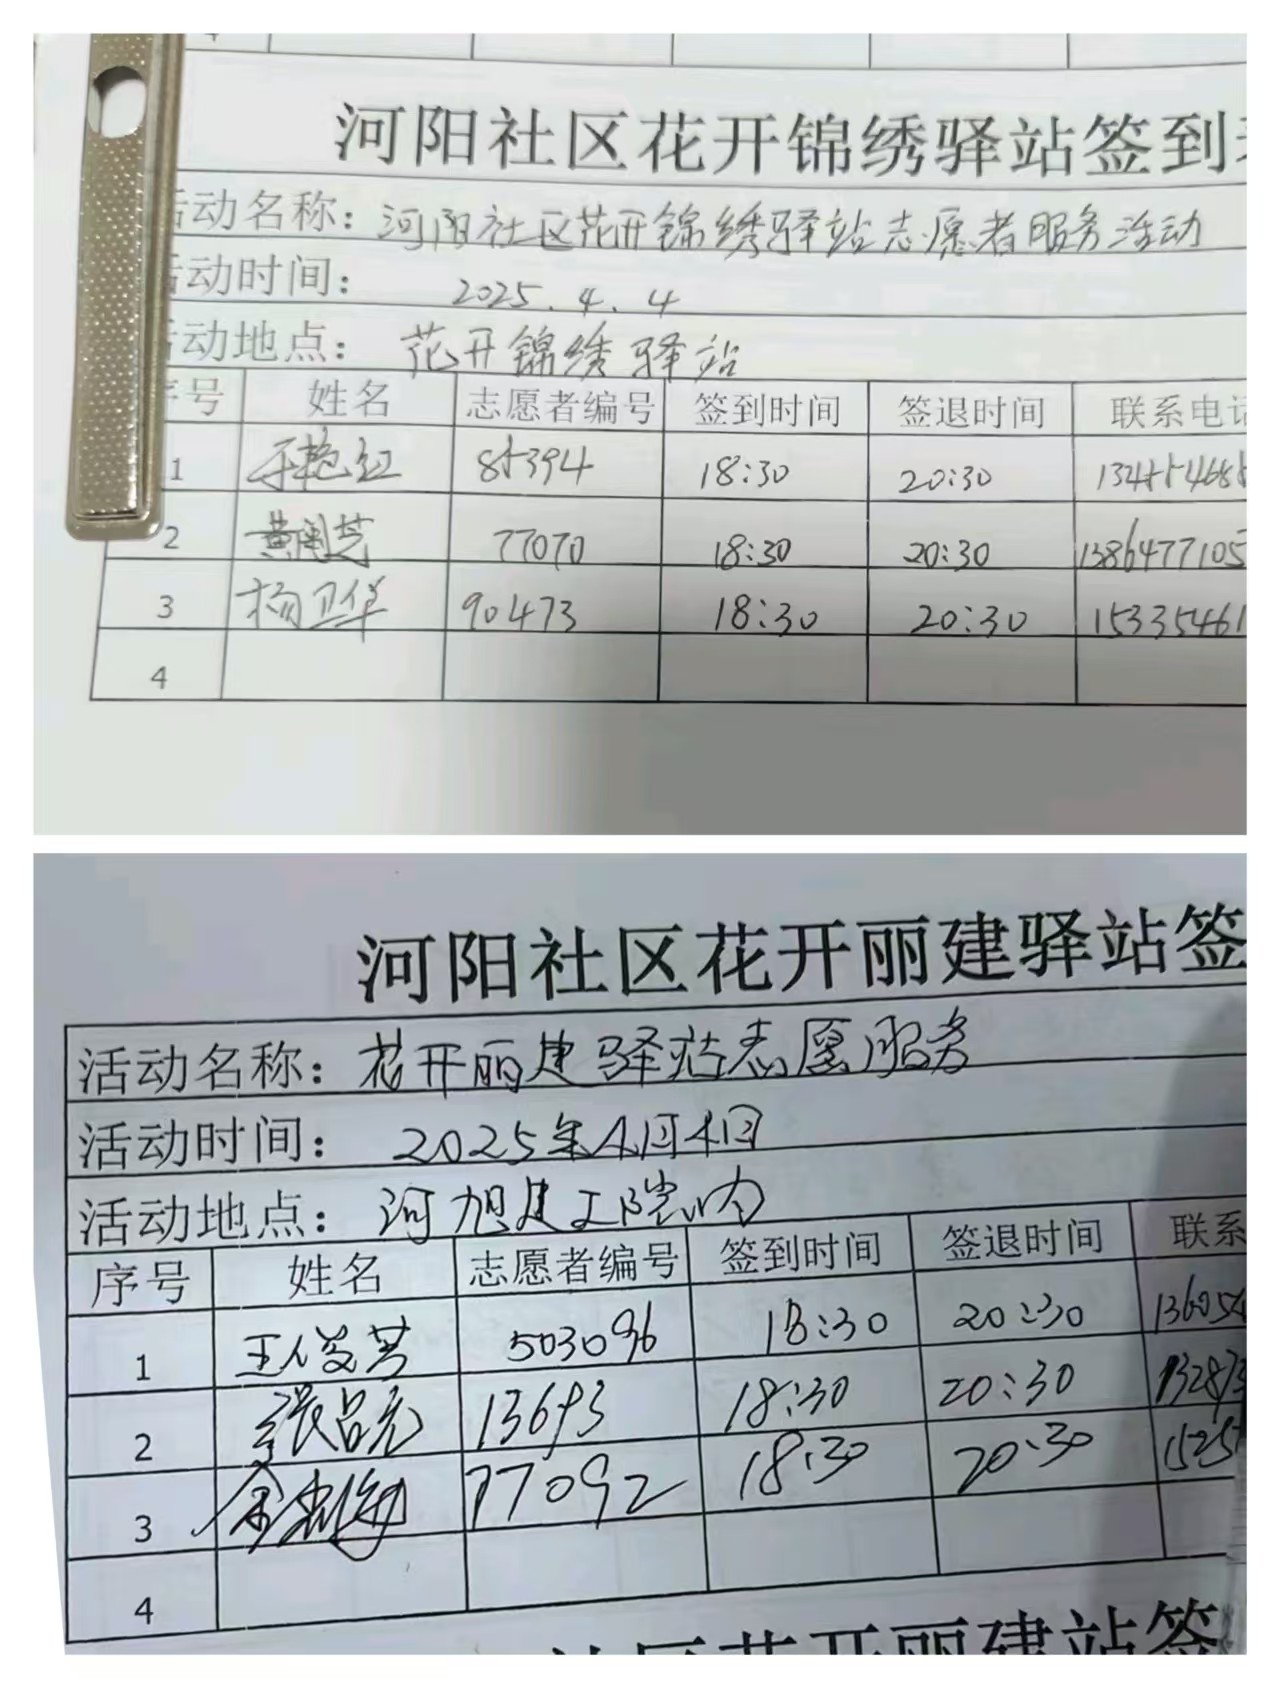 河阳社区花开锦绣驿站签到
活动名称：河阳社区花开锦绣驿站志愿者服务活动
活动时间： 2025.4.4
活动地点： 花开锦绣驿站
序号 姓名 志愿者编号 签到时间 签退时间 联系电话
1 于艳红 85394 18:30 20:30
2 77070 18:30 20:30 1386477105
3 杨卫华 90473 18:30 20:30 15335461
4
河阳社区花开丽建驿站签
活动名称：花开丽建驿站志愿服务
活动时间： 2025年4月4日
活动地点： 河旭建工院内
序号 姓名 志愿者编号 签到时间 签退时间 联系
1 王俊芳 503096 18:30 20:30
2 张吕元 13693 18:30 20:30
3 77092 18:30 20:30 1525
4
社区花开丽建站签